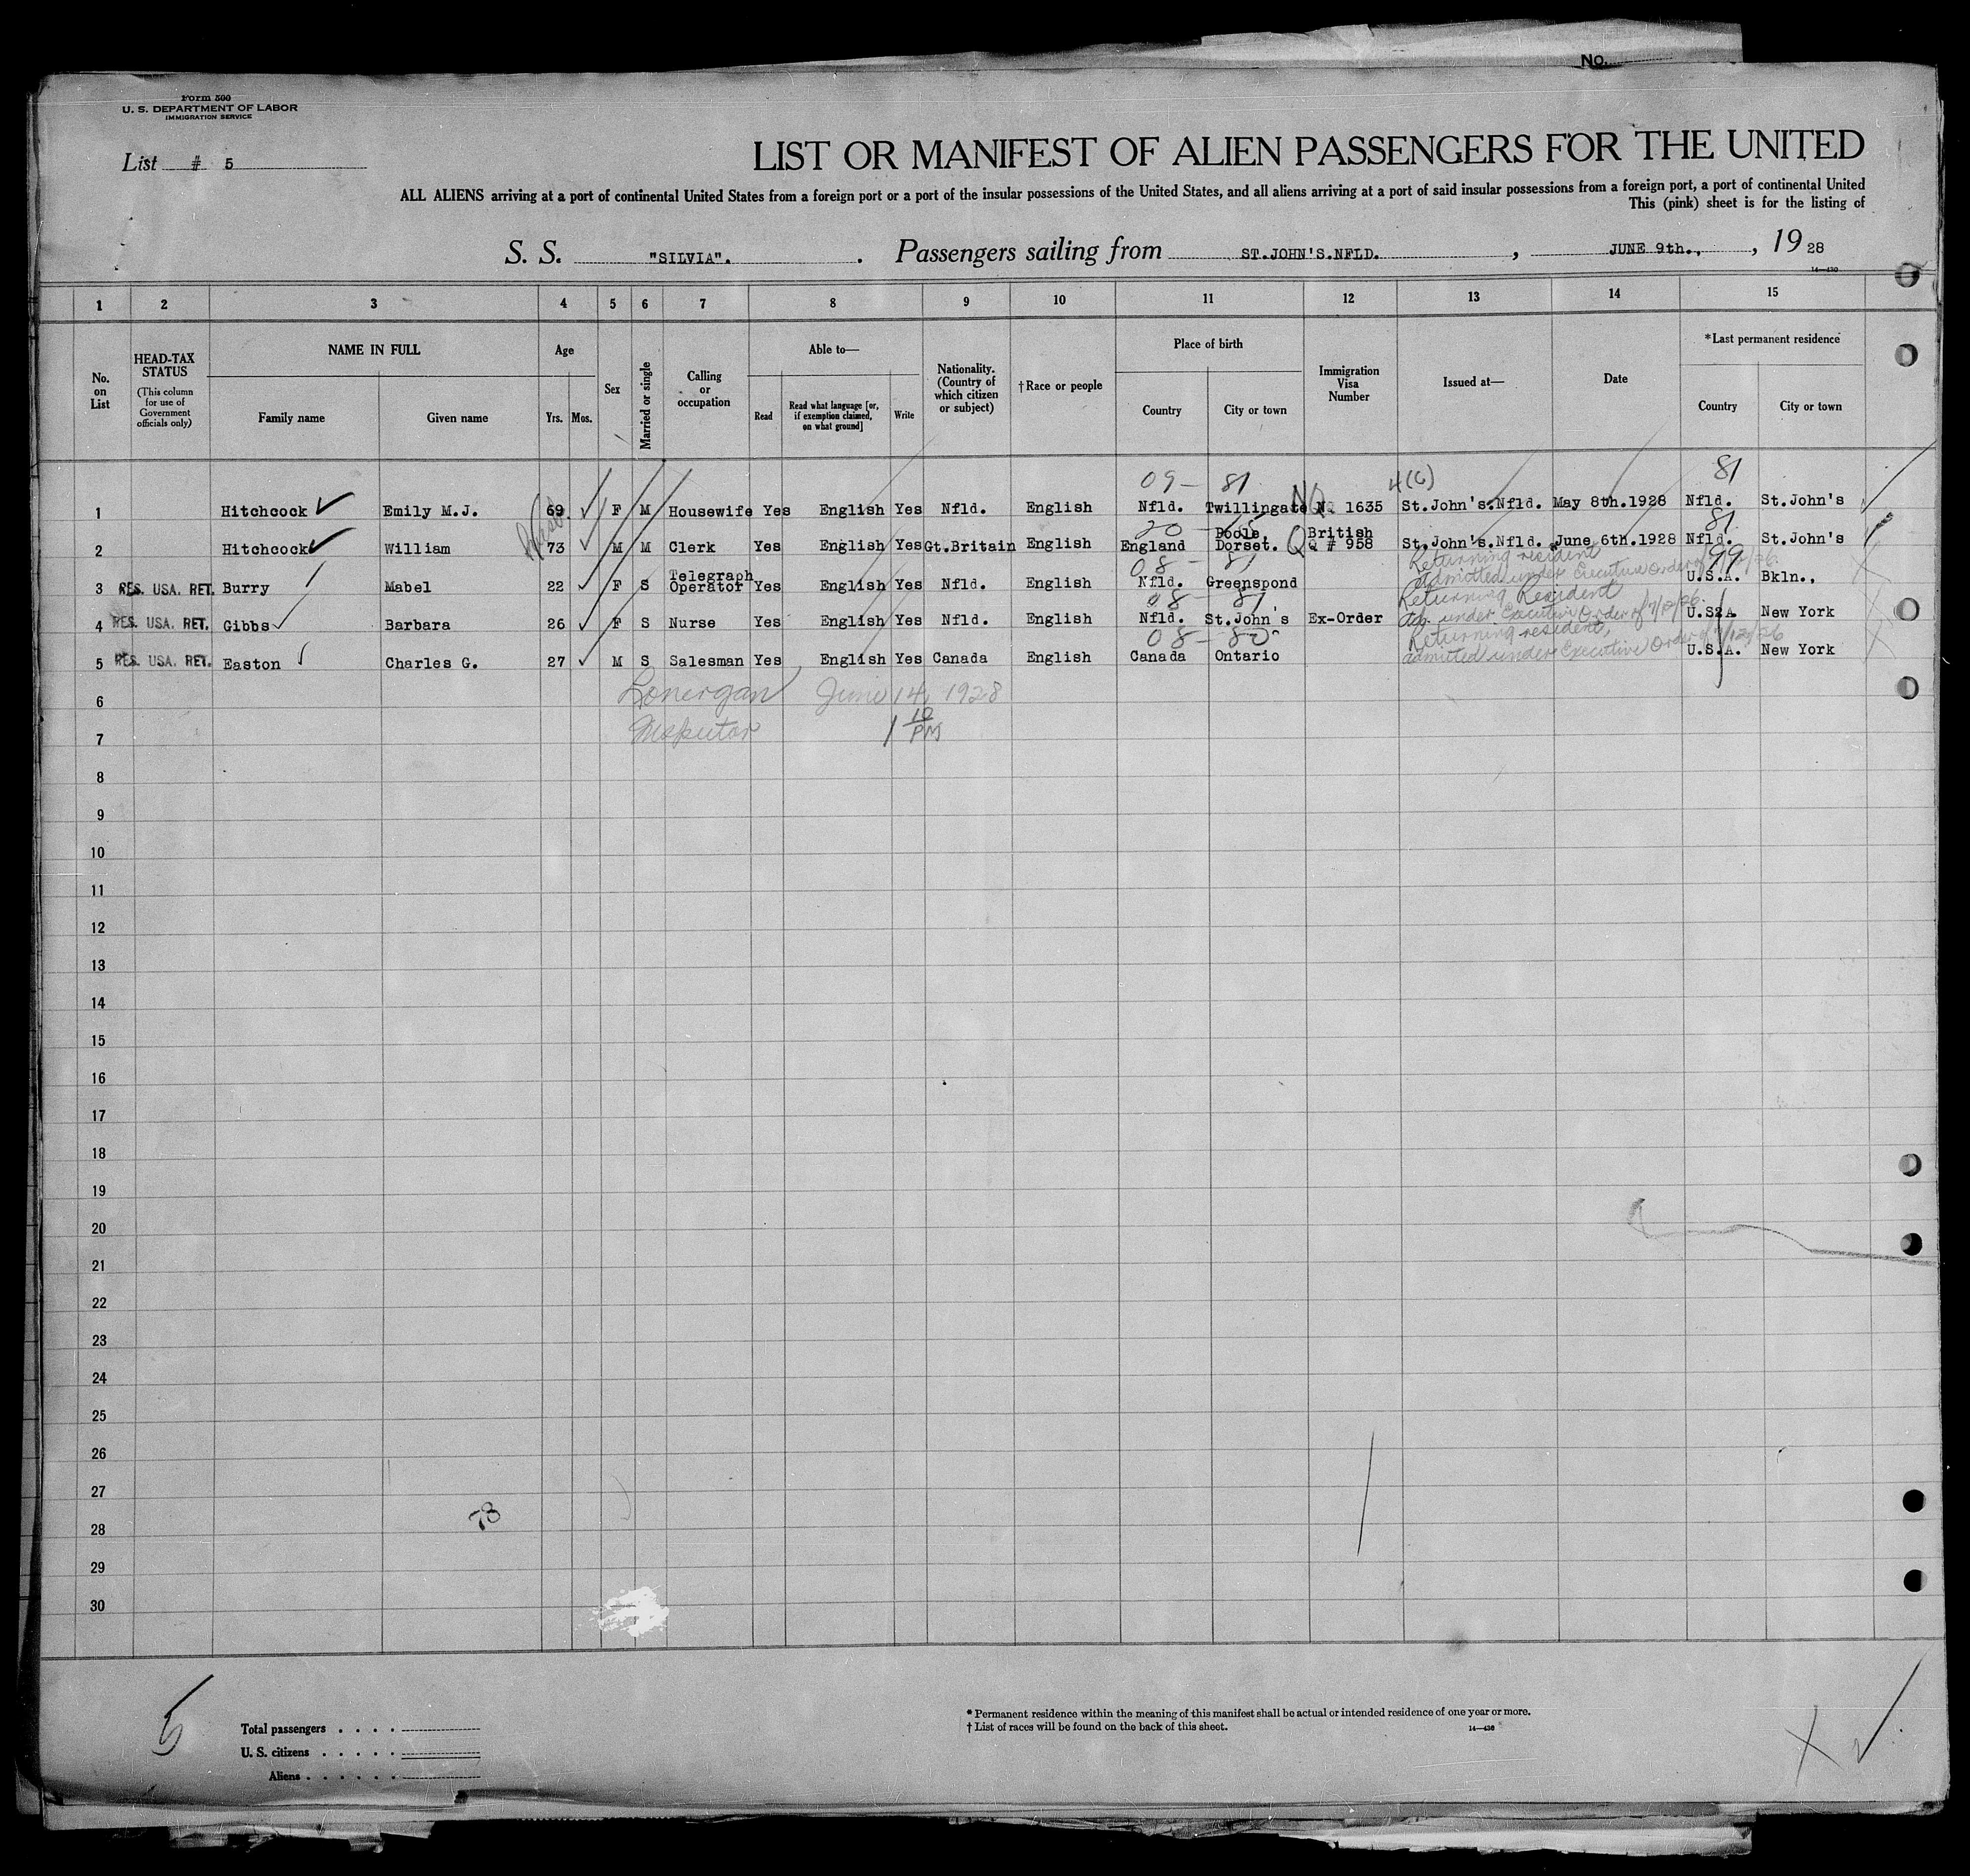 No.
Form 500
U. S. DEPARTMENT OF LABOR
IMMIGRATION SERVICE
List # 5
LIST OR MANIFEST OF ALIEN PASSENGERS FOR THE UNITED
ALL ALIENS arriving at a port of continental United States from a foreign port or a port of the insular possessions of the United States, and all aliens arriving at a port of said insular possessions from a foreign port, a port of continental United
This (pink) sheet is for the listing of
S. S. "SILVIA". Passengers sailing from ST.JOHN'S.NFLD. , JUNE 9th., , 19 28
14—430
1 2 3 4 5 6 7 8 9 10 11 12 13 14 15
No. on List
HEAD-TAX STATUS
(This column for use of Government officials only)
NAME IN FULL
Family name Given name
Age
Yrs. Mos.
Sex
Married or single
Calling or occupation
Able to—
Read
Read what language [or, if exemption claimed, on what ground]
Write
Nationality. (Country of which citizen or subject)
†Race or people
Place of birth
Country City or town
Immigration Visa Number
Issued at—
Date
*Last permanent residence
Country City or town
09 — 81 4(c) 81
1 Hitchcock Emily M.J. 69 F M Housewife Yes English Yes Nfld. English Nfld. Twillingate NQ No. 1635 St.John's.Nfld. May 8th.1928 Nfld. St.John's
20 81
2 Hitchcock William 73 M M Clerk Yes English Yes Gt.Britain English England Poole, Dorset. Q British Q # 958 St.John's.Nfld. June 6th.1928 Nfld. St.John's
08 — 81 Returning resident 99
3 RES. USA. RET. Burry Mabel 22 F S Telegraph Operator Yes English Yes Nfld. English Nfld. Greenspond admitted under Executive Order of U.S.A. Bkln.,
08 — 81 Returning Resident
4 RES. USA. RET. Gibbs Barbara 26 F S Nurse Yes English Yes Nfld. English Nfld. St.John's Ex-Order ad. under Executive Order of 7/12/26 U.S.A New York
08 — 80 Returning resident,
5 RES. USA. RET. Easton Charles G. 27 M S Salesman Yes English Yes Canada English Canada Ontario admitted under Executive Order of 7/12/26 U.S.A. New York
6 Lonergan, June 14, 1928
7 Inspector 1 10 PM
8
9
10
11
12
13
14
15
16
17
18
19
20
21
22
23
24
25
26
27
28 78
29
30
5
Total passengers . . . .
U. S. citizens . . . . .
Aliens . . . . . .
* Permanent residence within the meaning of this manifest shall be actual or intended residence of one year or more.
† List of races will be found on the back of this sheet. 14—430